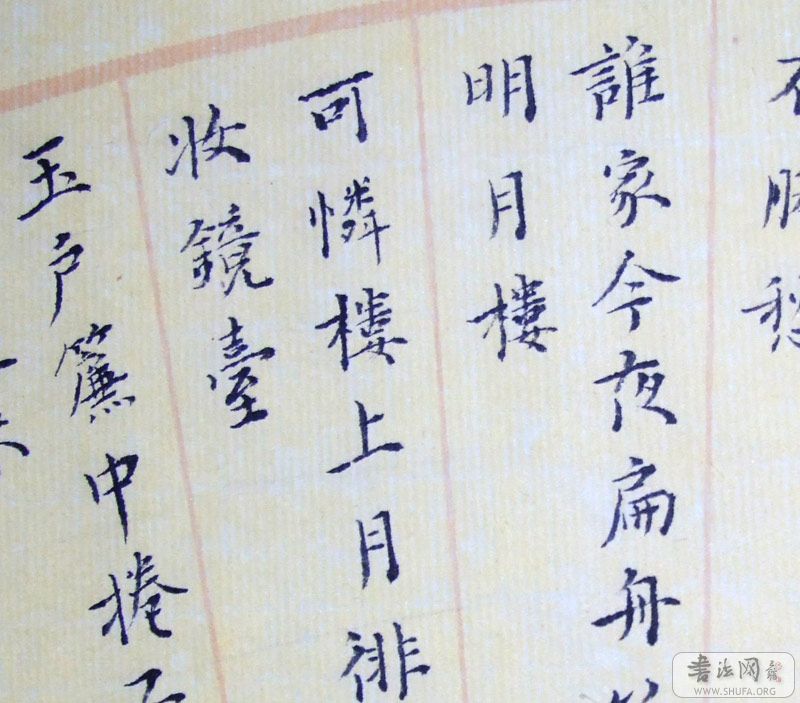 不勝愁
誰家今夜扁舟
明月樓
可憐樓上月徘
妆鏡臺
玉户簾中捲不
書法网
WWW.SHUFA.ORG